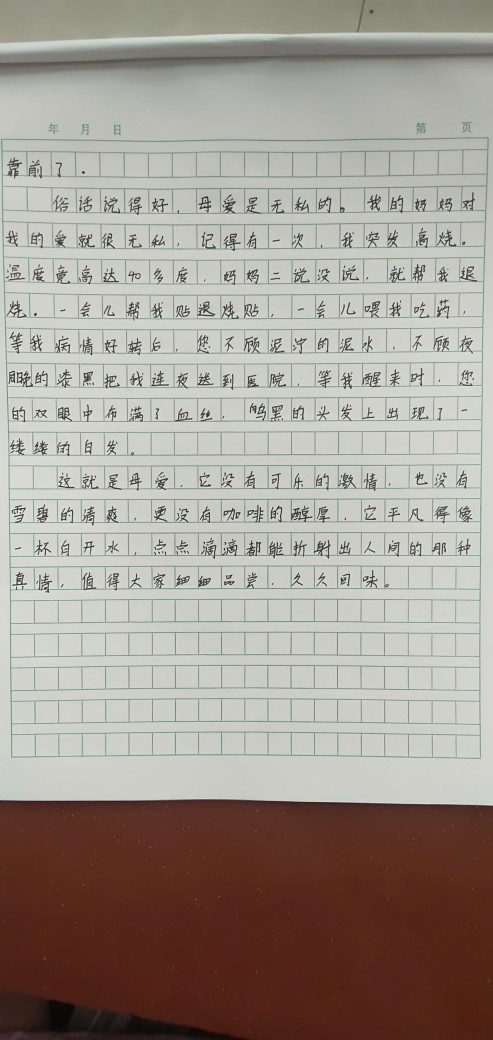 年 月 日 第 页
靠前了.
俗话说得好,母爱是无私的。我的妈妈对
我的爱就很无私,记得有一次,我突发高烧。
温度竟高达40多度,妈妈二说没说,就帮我退
烧.一会儿帮我贴退烧贴,一会儿喂我吃药,
等我病情好转后,您不顾泥泞的泥水,不顾夜
晚的漆黑把我连夜送到医院,等我醒来时,您
的双眼中布满了血丝,乌黑的头发上出现了一
缕缕的白发。
这就是母爱.它没有可乐的激情,也没有
雪碧的清爽,更没有咖啡的醇厚,它平凡得像
一杯白开水,点点滴滴都能折射出人间的那种
真情,值得大家细细品尝,久久回味。